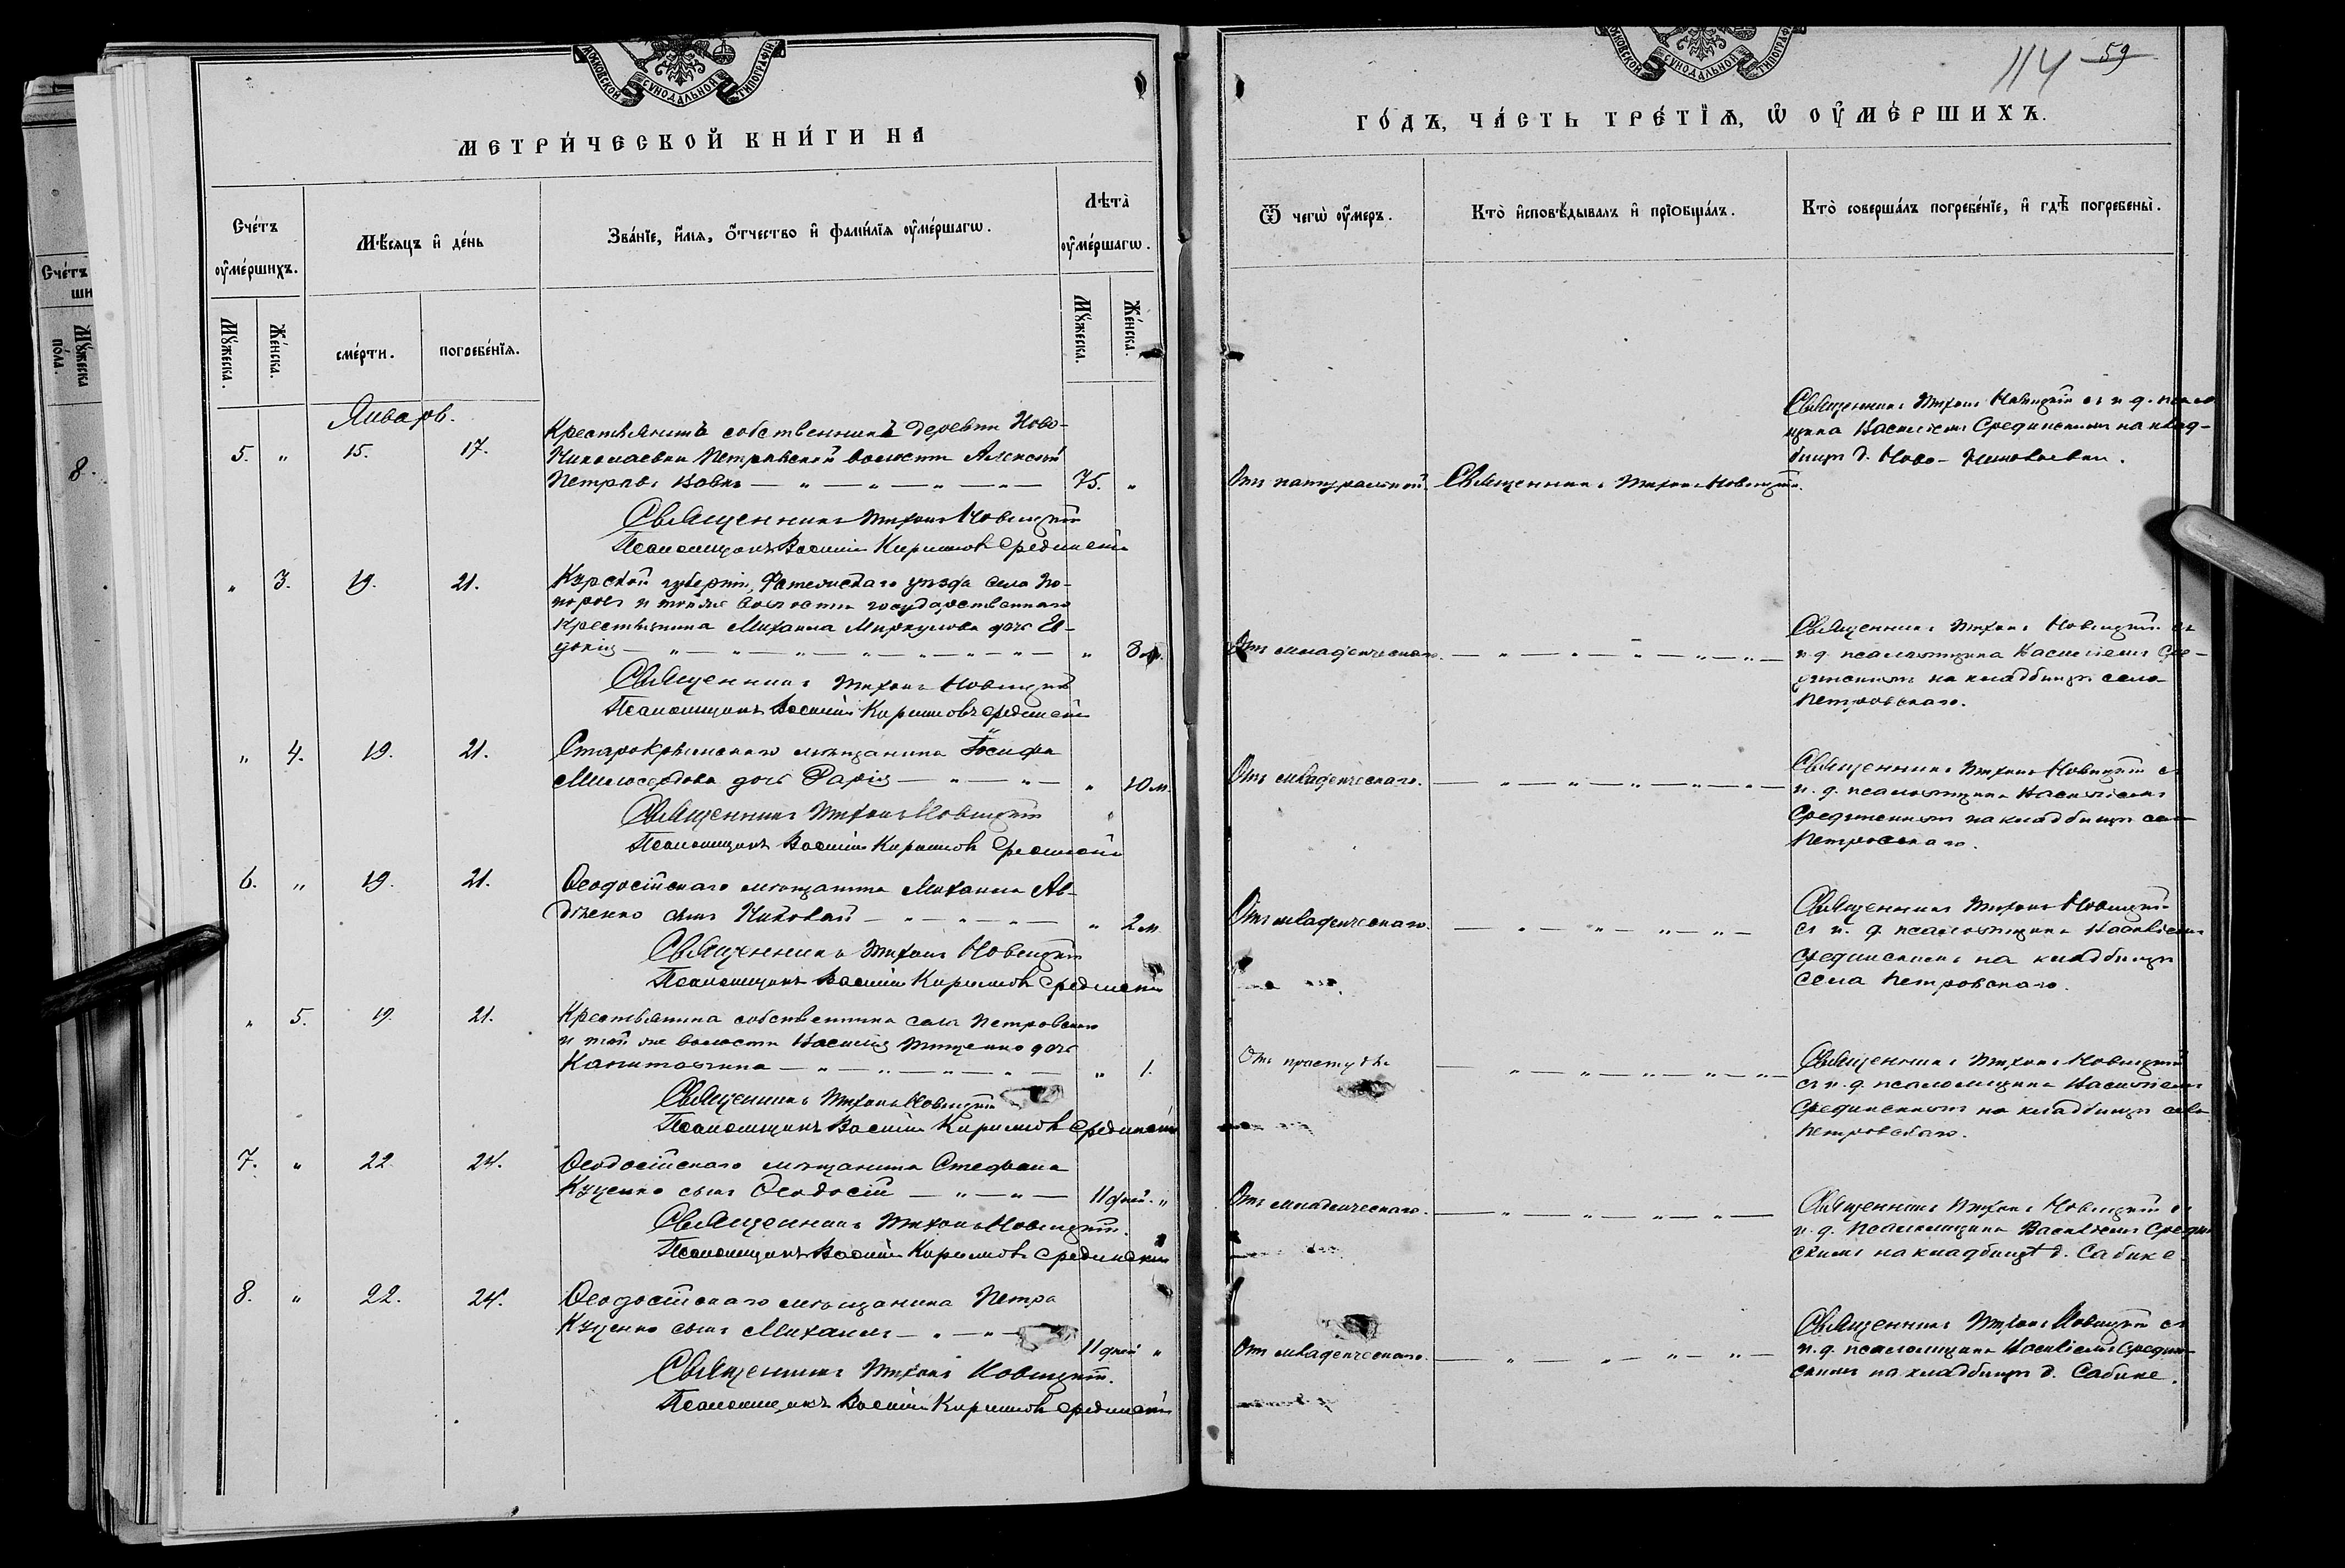 МОСКОВСКОЙ СУНОДАЛЬНОЙ ТИПОГРАФІИ
МЕТРИ́ЧЕСКОЙ КНИ́ГИ НА
Сче́тъ ᲂу҆ме́ршихъ.
Мѣ́сяцъ и҆ де́нь
Зва́нїе, и҆́мѧ, ѻ҆́тчество и҆ фами́лїѧ ᲂу҆ме́ршагѡ.
Лѣта̀ ᲂу҆ме́ршагѡ.
Мꙋ́жеска.
Же́нска.
сме́рти.
погребе́нїѧ.
Мꙋ́жеска.
Же́нска.
Январь.
5. " 15. 17.
Крестьянинъ собственникъ деревни Ново-
Николаевки Петровской волости Алексѣй
Петровъ Вовкъ — " — " — " — " — 75. "
Священникъ Тихонъ Новицкій
Псаломщикъ Василій Кириловъ Срединскій
" 3. 19. 21.
Курской губерніи, Фатежскаго уѣзда села
и той же волости государственнаго
крестьянина Михаила Меркулова дочь Ев-
докія — " — " — " — " — " — " 3 м.
Священникъ Тихонъ Новицкій
Псаломщикъ Василій Кириловъ Срединскій
" 4. 19. 21.
Старокрымскаго мѣщанина Іосифа
Милосердова дочь Дарія — " — " — " 10 м.
Священникъ Тихонъ Новицкій
Псаломщикъ Василій Кириловъ Срединскій
6. " 19. 21.
Ѳеодосійскаго мѣщанина Михаила Ав-
дѣенко сынъ Николай — " — " — " 2 м.
Священникъ Тихонъ Новицкій
Псаломщикъ Василій Кириловъ Срединскій
" 5. 19. 21.
Крестьянина собственника села Петровскаго
и той же волости Василія Тищенко дочь
Капитолина — " — " — " — " — " 1.
Священникъ Тихонъ Новицкій
Псаломщикъ Василій Кириловъ Срединскій
7. " 22 24.
Ѳеодосійскаго мѣщанина Стефана
Куценко сынъ Ѳеодосій — " — " — 11 дней. "
Священникъ Тихонъ Новицкій.
Псаломщикъ Василій Кириловъ Срединскій
8. " 22. 24.
Ѳеодосійскаго мѣщанина Петра
Куценко сынъ Михаилъ — " — " — 11 дней "
Священникъ Тихонъ Новицкій.
Псаломщикъ Василій Кириловъ Срединскій
Сче́тъ
ши
Мꙋ́жеска по́ла.
8.
МОСКОВСКОЙ СУНОДАЛЬНОЙ ТИПОГРАФІИ
114 59
ГО́ДЪ, ЧА́СТЬ ТРЕ́ТЇѦ, Ѡ҆ ОУ҆МЕ́РШИХЪ.
Ѿ чегѡ̀ ᲂу҆́меръ.
Кто̀ и҆сповѣ́дывалъ и҆ прїобща́лъ.
Кто̀ соверша́лъ погребе́нїе, и҆ гдѣ̀ погребены̀.
Отъ натуральной. Священникъ Тихонъ Новицкій.
Священникъ Тихонъ Новицкій съ и. д. псалом-
щика Василіемъ Срединскимъ на клад-
бищѣ д. Ново-Николаевки.
Отъ младенческаго. — " — " — " — " — " —
Священникъ Тихонъ Новицкій съ
и. д. псаломщика Василіемъ Сре-
динскимъ на кладбищѣ села
Петровскаго.
Отъ младенческаго. — " — " — " — " — " —
Священникъ Тихонъ Новицкій съ
и. д. псаломщика Василіемъ
Срединскимъ на кладбищѣ села
Петровскаго.
Отъ младенческаго. — " — " — " — " —
Священникъ Тихонъ Новицкій
съ и. д. псаломщика Василіемъ
Срединскимъ на кладбищѣ
села Петровскаго.
Отъ простуды — " — " — " — " — " —
Священникъ Тихонъ Новицкій
съ и. д. псаломщика Василіемъ
Срединскимъ на кладбищѣ села
Петровскаго.
Отъ младенческаго. — " — " — " — " —
Священникъ Тихонъ Новицкій съ
и. д. псаломщика Василіемъ Средин-
скимъ на кладбищѣ д. Сабике.
Отъ младенческаго. — " — " — " — " —
Священникъ Тихонъ Новицкій съ
и. д. псаломщика Василіемъ Средин-
скимъ на кладбищѣ д. Сабике.